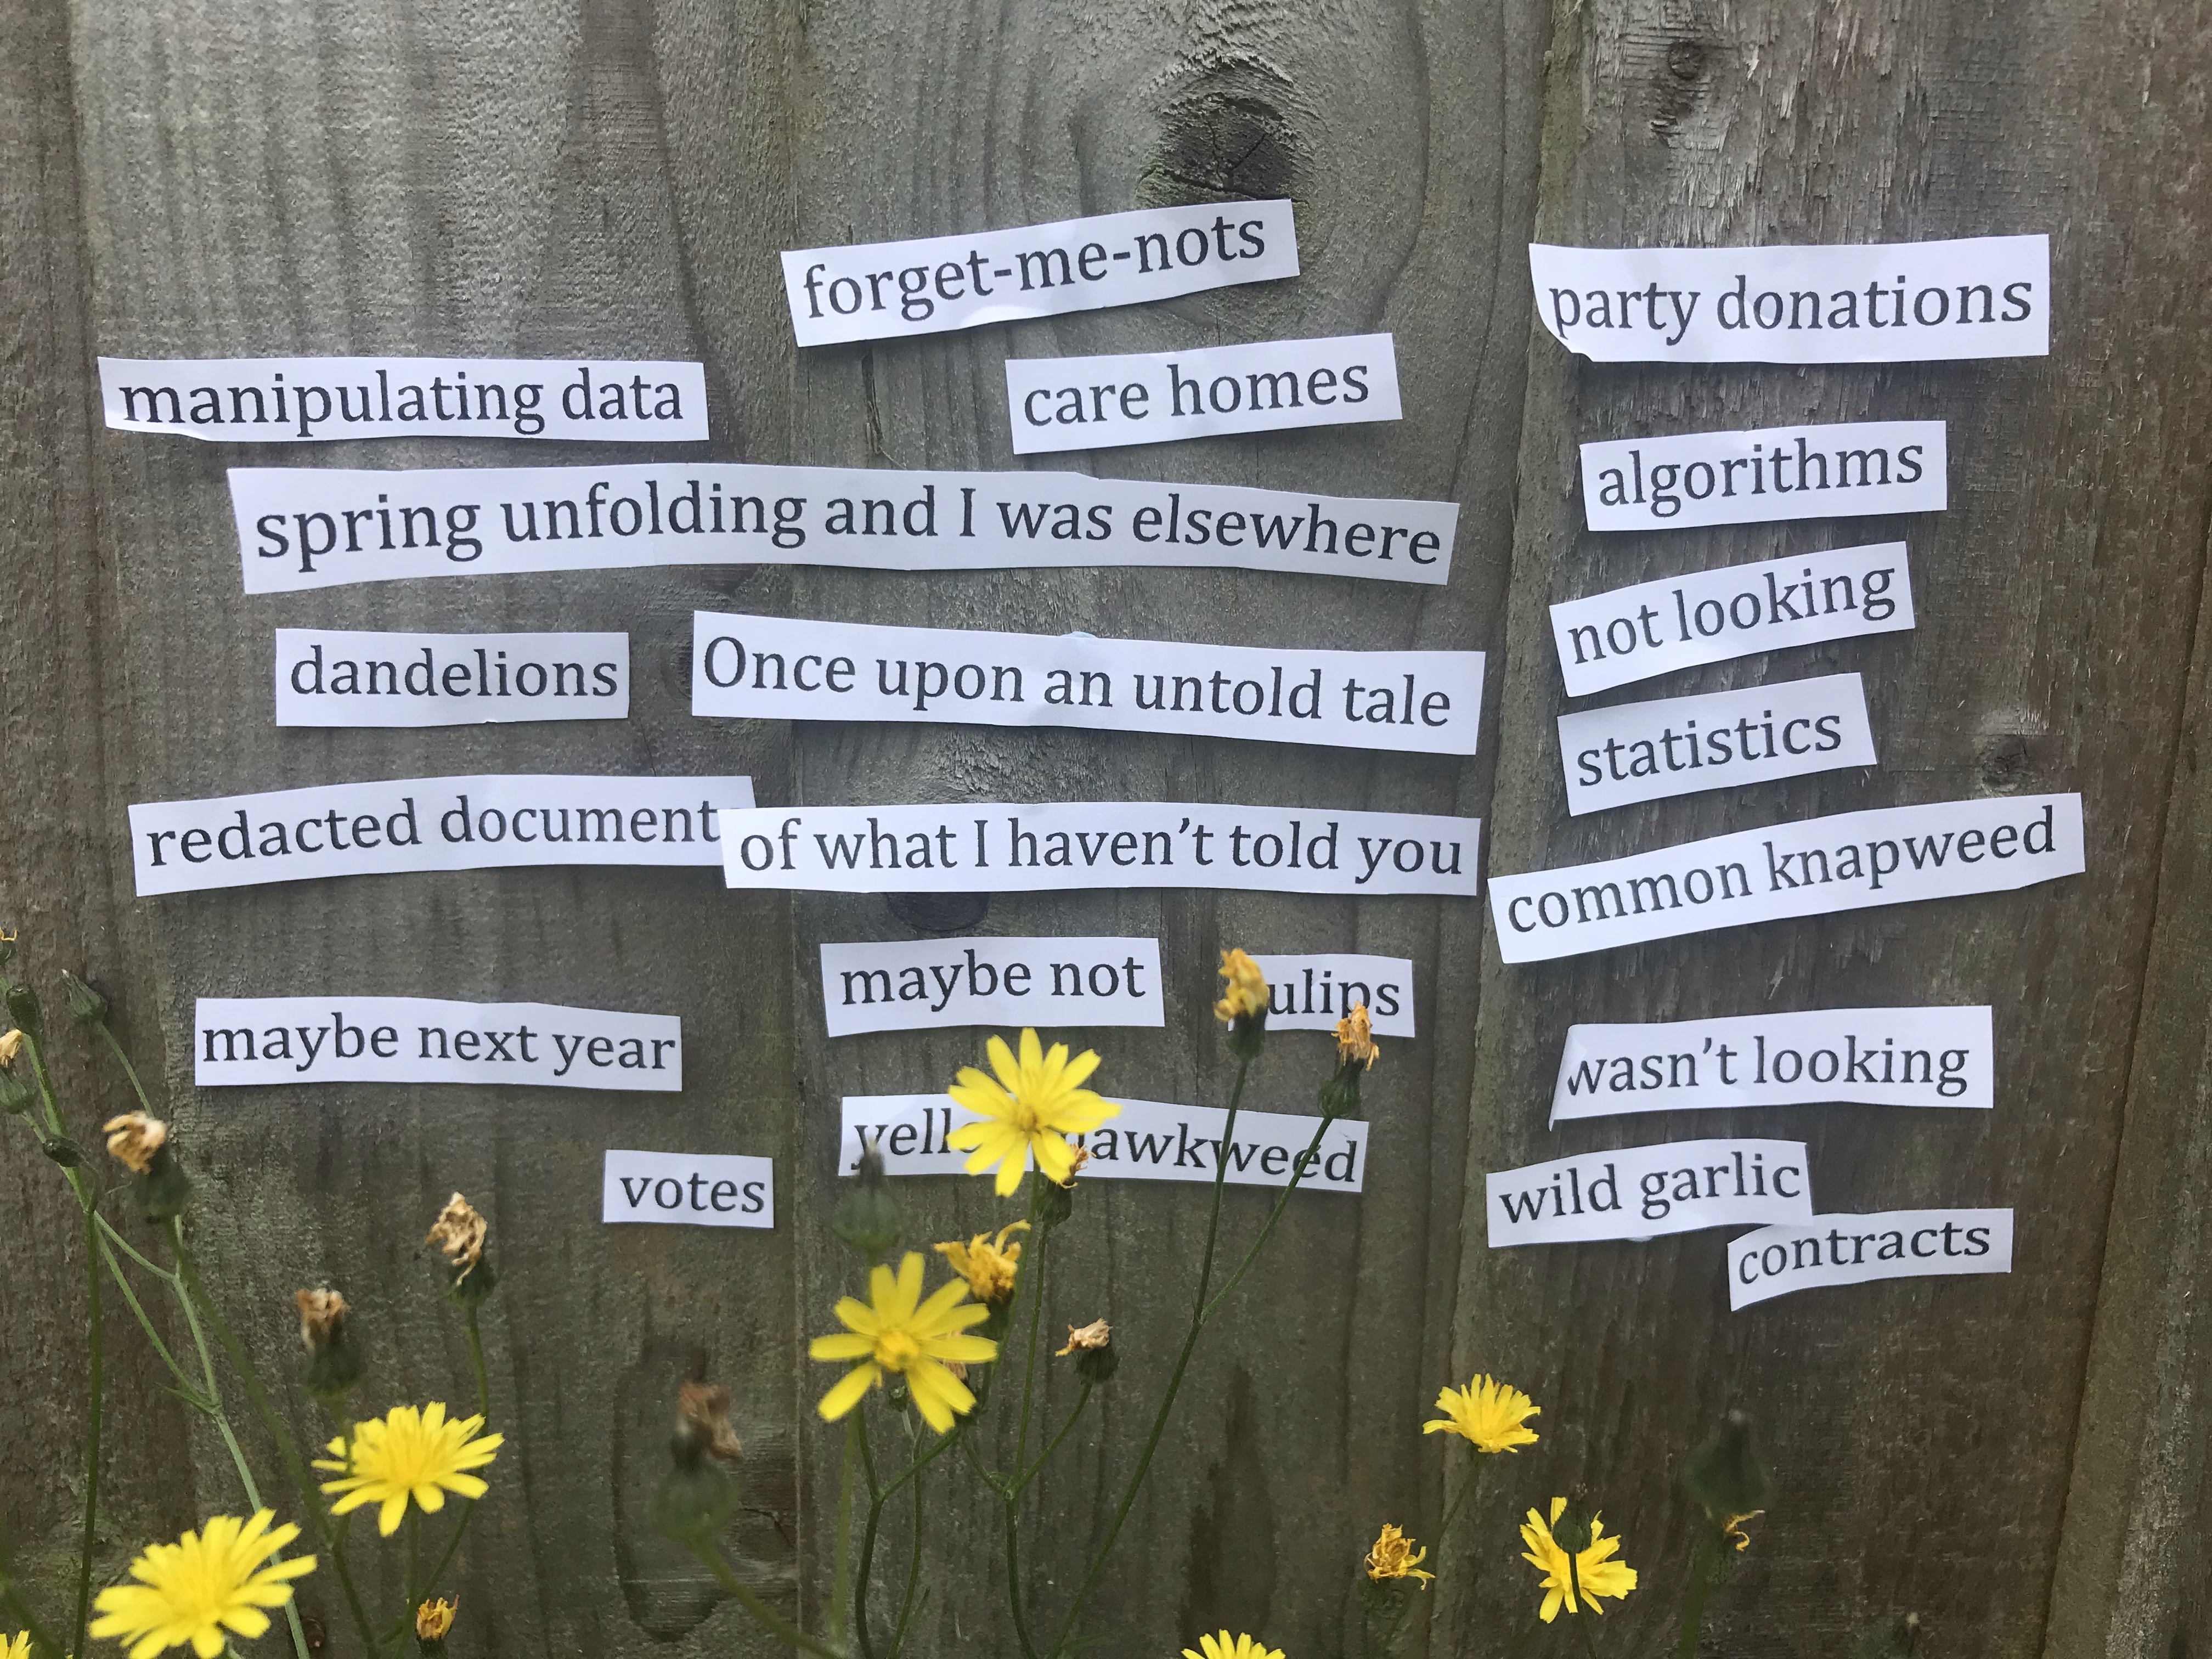 forget-me-nots
party donations
manipulating data
care homes
algorithms
spring unfolding and I was elsewhere
not looking
dandelions
Once upon an untold tale
statistics
redacted document
of what I haven't told you
common knapweed
maybe not
ulips
maybe next year
wasn't looking
yell awkweed
votes
wild garlic
contracts